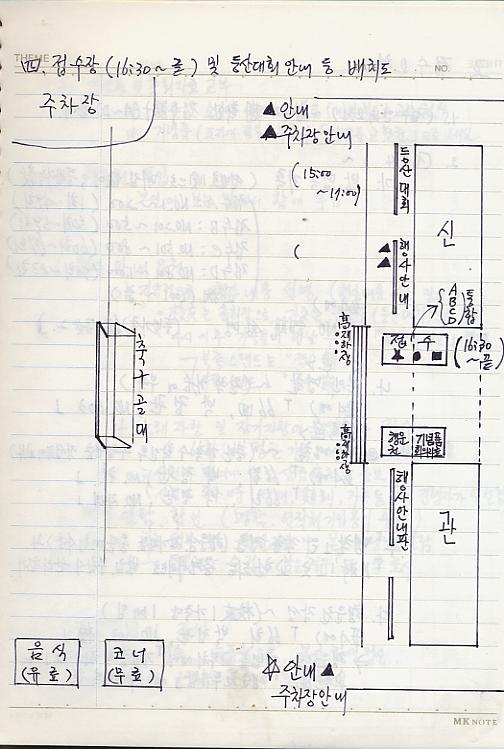 THEME
NO.
四. 접수장 (16:30~끝) 및 등산대회 안내 등. 배치도
주차장
▲ 안내
▲ 주차장안내
(15:00
~17:00)
등산대회
신
▲▲ 행사안내
(
A B C D 통합
접 수
▲ ● ■
(16:30
~끝)
축구골대
행운권
기념품
행사안내판
관
음식
(유료)
코너
(무료)
☆ 안내 ▲
주차장안내
MK NOTE